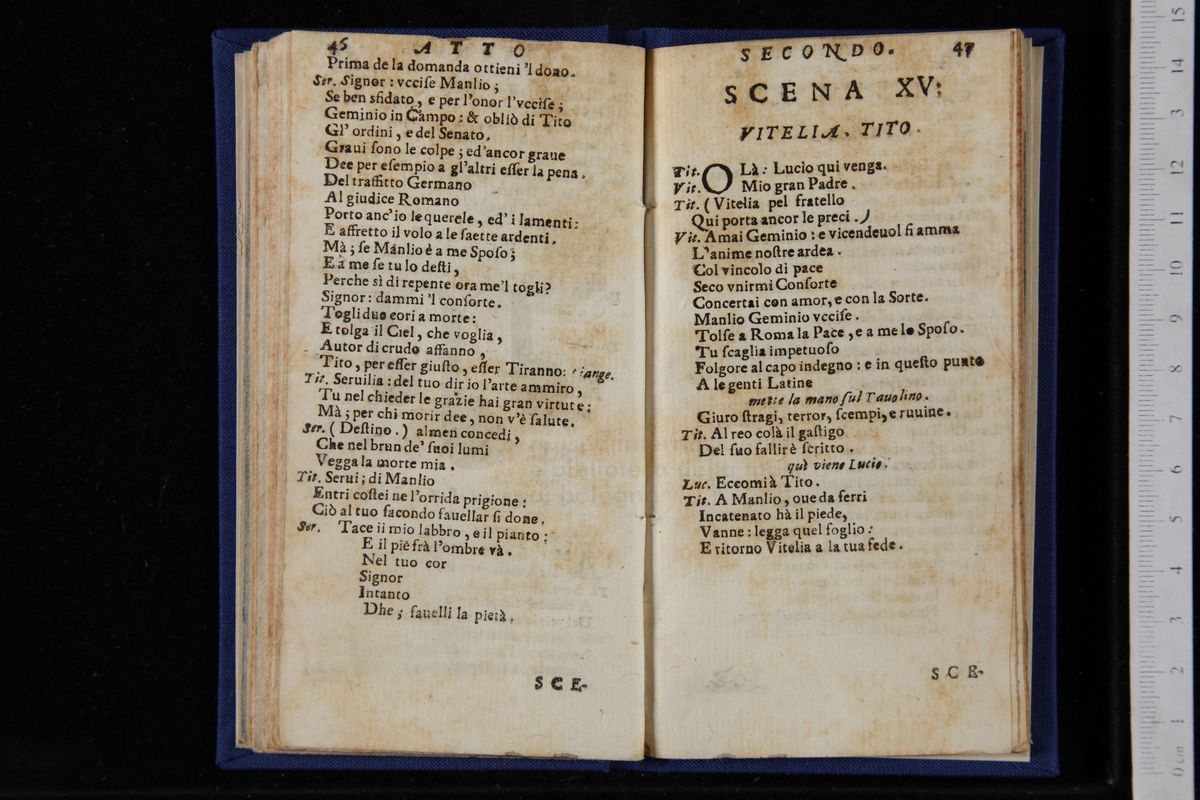 45 ATTO
Prima de la domanda ottieni 'l dono.
Ser. Signor : vcciſe Manlio ;
Se ben sfidato , e per l'onor l'vcciſe ;
Geminio in Campo : & obliò di Tito
Gl' ordini , e del Senato.
Graui ſono le colpe ; ed'ancor graue
Dee per eſempio a gl'altri eſſer la pena .
Del traffitto Germano
Al giudice Romano
Porto anc'io le querele , ed' i lamenti :
E affretto il volo a le ſaette ardenti .
Mà ; ſe Manlio è a me Spoſo ;
E a me ſe tu lo deſti ,
Perche sì di repente ora me'l togli ?
Signor : dammi 'l conſorte .
Togli duo cori a morte :
E tolga il Ciel , che voglia ,
Autor di crudo affanno ,
Tito , per eſſer giuſto , eſſer Tiranno: piange.
Tit. Seruilia : del tuo dir io l'arte ammiro ,
Tu nel chieder le grazie hai gran virtute ;
Mà ; per chi morir dee , non v'è ſalute.
Ser. ( Deſtino . ) almen concedi ,
Che nel brun de' ſuoi lumi
Vegga la morte mia .
Tit. Serui ; di Manlio
Entri coſtei ne l'orrida prigione :
Ciò al tuo facondo fauellar ſi done .
Ser. Tace il mio labbro , e il pianto :
E il piè frà l'ombre và .
Nel tuo cor
Signor
Intanto
Dhe ; fauelli la pietà .
SCE-
SECONDO. 47
SCENA XV;
VITELIA. TITO.
Tit. OLà : Lucio qui venga.
Vit. Mio gran Padre .
Tit. ( Vitelia pel fratello
Qui porta ancor le preci . )
Vit. Amai Geminio : e vicendeuol fiamma
L'anime noſtre ardea .
Col vincolo di pace
Seco vnirmi Conſorte
Concertai con amor, e con la Sorte.
Manlio Geminio vcciſe .
Tolſe a Roma la Pace , e a me lo Spoſo.
Tu ſcaglia impetuoſo
Folgore al capo indegno : e in queſto punto
A le genti Latine
mette la mano ſul Tauolino.
Giuro ſtragi, terror, ſcempi, e ruuine.
Tit. Al reo colà il gaſtigo
Del ſuo fallir è ſcritto .
quì viene Lucio.
Luc. Eccomi à Tito .
Tit. A Manlio , oue da ferri
Incatenato hà il piede,
Vanne : legga quel foglio :
E ritorno Vitelia a la tua fede .
SCE-